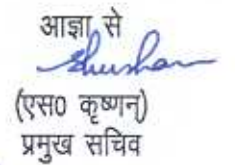 आज्ञा से
(एस0 कृष्णन्)
प्रमुख सचिव